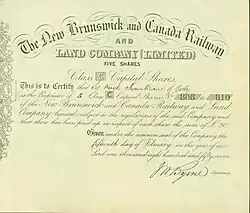 The New Brunswick and Canada Railway
AND
LAND COMPANY (LIMITED)
FIVE SHARES
Class C Capital Shares
This is to Certify that
is the Proprietor of 5 Class C Capital Shares No 806 to 810
of the New Brunswick and Canada Railway and Land
Company Limited subject to the regulations of the said Company and
that there has been paid up in respect of each share the sum of
GIVEN under the common seal of the Company, the
fifteenth day of February, in the year of our
Lord one thousand eight hundred and fifty
Secretary